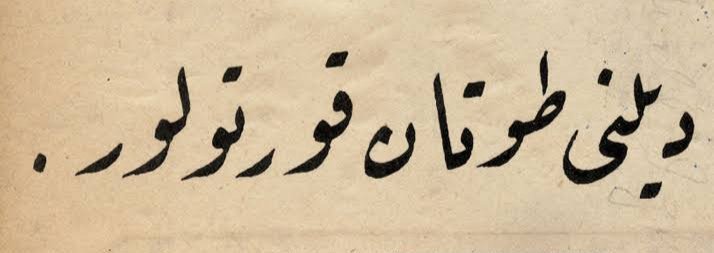 دیلنی طوتان قورتولور .